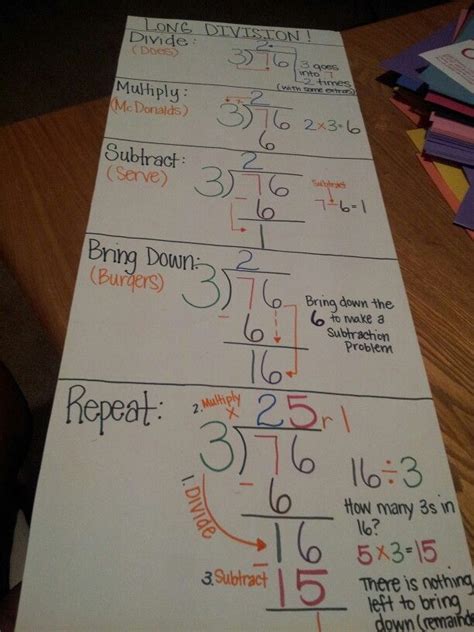 LONG DIVISION!
Divide:
(Does)
2
3)76
3 goes
into 7
2 times
(with some extras)
Multiply:
(McDonalds)
x 2
3)76
6
2x3=6
Subtract:
(Serve)
2
3)76
- 6
1
Subtract
7-6=1
Bring Down:
(Burgers)
2
3)76
- 6
16
Bring down the
6 to make a
Subtraction
Problem
Repeat:
2. Multiply
x
25 r 1
3)76
- 6
16
1. Divide
3. Subtract
- 15
1
16÷3
How many 3s in
16?
5x3=15
There is nothing
left to bring
down